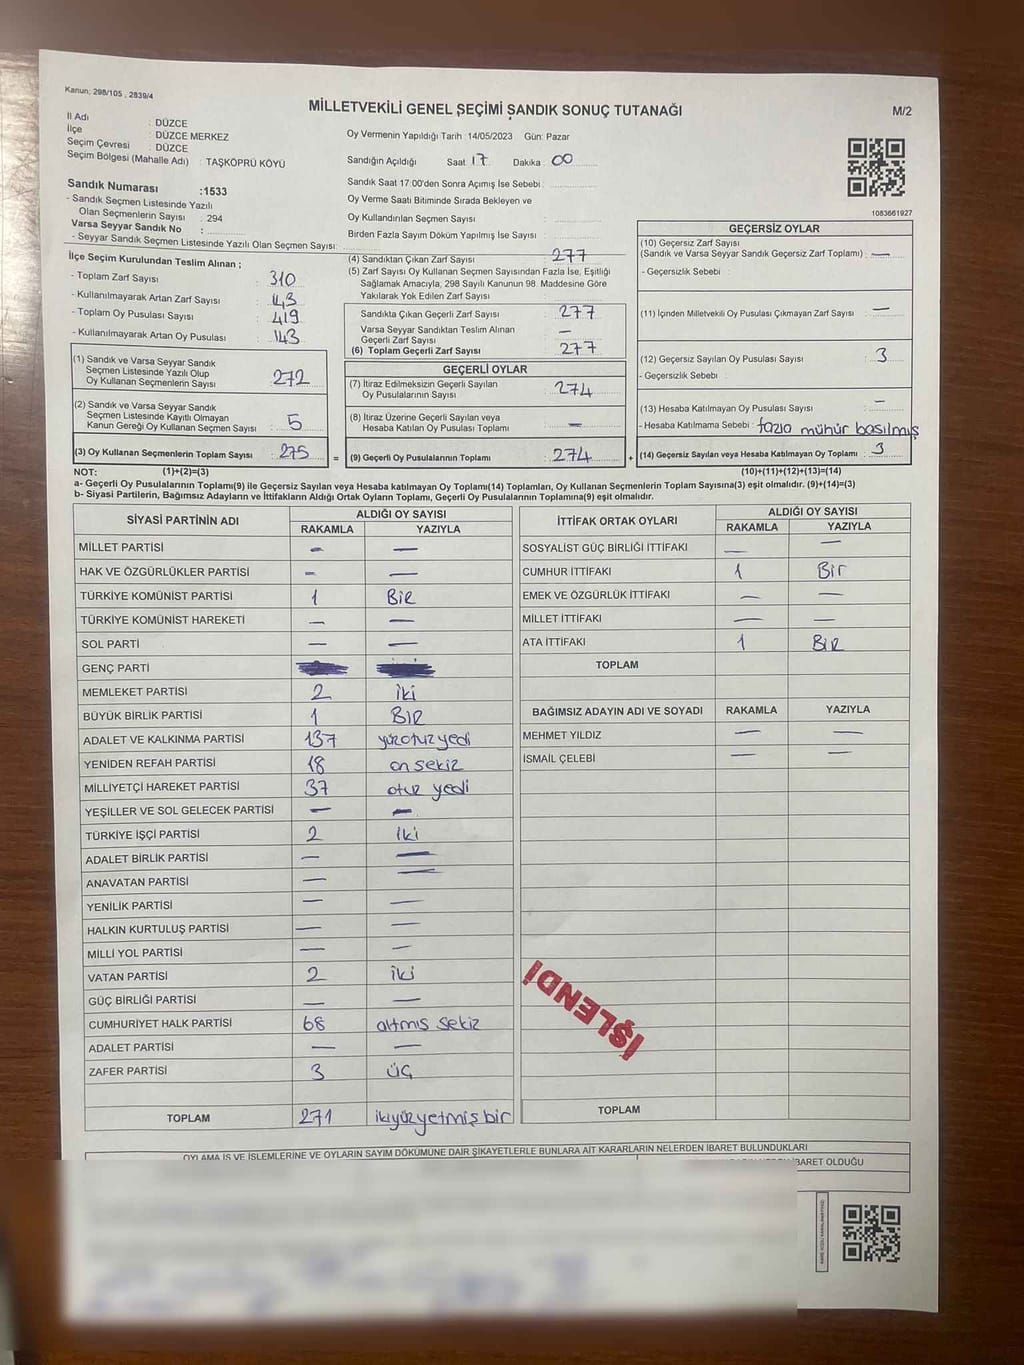 Kanun; 298/105 , 2839/4
MİLLETVEKİLİ GENEL SEÇİMİ SANDIK SONUÇ TUTANAĞI
M/2
İl Adı : DÜZCE
İlçe : DÜZCE MERKEZ
Seçim Çevresi : DÜZCE
Seçim Bölgesi (Mahalle Adı) : TAŞKÖPRÜ KÖYÜ
Oy Vermenin Yapıldığı Tarih :14/05/2023 Gün: Pazar
Sandığın Açıldığı Saat : 17 Dakika : 00
Sandık Numarası :1533
- Sandık Seçmen Listesinde Yazılı
Olan Seçmenlerin Sayısı : 294
Varsa Seyyar Sandık No :
- Seyyar Sandık Seçmen Listesinde Yazılı Olan Seçmen Sayısı:
Sandık Saat 17:00'den Sonra Açımış İse Sebebi :
Oy Verme Saati Bitiminde Sırada Bekleyen ve
Oy Kullandırılan Seçmen Sayısı :
Birden Fazla Sayım Döküm Yapılmış İse Sayısı :
1083661927
İlçe Seçim Kurulundan Teslim Alınan ;
- Toplam Zarf Sayısı : 310
- Kullanılmayarak Artan Zarf Sayısı : 43
- Toplam Oy Pusulası Sayısı : 419
- Kullanılmayarak Artan Oy Pusulası : 143
(1) Sandık ve Varsa Seyyar Sandık
Seçmen Listesinde Yazılı Olup
Oy Kullanan Seçmenlerin Sayısı : 272
(2) Sandık ve Varsa Seyyar Sandık
Seçmen Listesinde Kayıtlı Olmayan
Kanun Gereği Oy Kullanan Seçmen Sayısı : 5
(3) Oy Kullanan Seçmenlerin Toplam Sayısı : 275 =
(4) Sandıktan Çıkan Zarf Sayısı : 277
(5) Zarf Sayısı Oy Kullanan Seçmen Sayısından Fazla İse, Eşitliği
Sağlamak Amacıyla, 298 Sayılı Kanunun 98. Maddesine Göre
Yakılarak Yok Edilen Zarf Sayısı :
Sandıkta Çıkan Geçerli Zarf Sayısı : 277
Varsa Seyyar Sandıktan Teslim Alınan
Geçerli Zarf Sayısı : —
(6) Toplam Geçerli Zarf Sayısı : 277
GEÇERLİ OYLAR
(7) İtiraz Edilmeksizin Geçerli Sayılan
Oy Pusulalarının Sayısı : 274
(8) İtiraz Üzerine Geçerli Sayılan veya
Hesaba Katılan Oy Pusulası Toplamı : —
(9) Geçerli Oy Pusulalarının Toplamı : 274 +
GEÇERSİZ OYLAR
(10) Geçersiz Zarf Sayısı
(Sandık ve Varsa Seyyar Sandık Geçersiz Zarf Toplamı) : —
- Geçersizlik Sebebi :
(11) İçinden Milletvekili Oy Pusulası Çıkmayan Zarf Sayısı : —
(12) Geçersiz Sayılan Oy Pusulası Sayısı : 3
- Geçersizlik Sebebi :
(13) Hesaba Katılmayan Oy Pusulası Sayısı : —
- Hesaba Katılmama Sebebi : fazla mühür basılmış
(14) Geçersiz Sayılan veya Hesaba Katılmayan Oy Toplamı : 3
NOT: (1)+(2)=(3)
(10)+(11)+(12)+(13)=(14)
a- Geçerli Oy Pusulalarının Toplamı(9) ile Geçersiz Sayılan veya Hesaba katılmayan Oy Toplamı(14) Toplamları, Oy Kullanan Seçmenlerin Toplam Sayısına(3) eşit olmalıdır. (9)+(14)=(3)
b- Siyasi Partilerin, Bağımsız Adayların ve İttifakların Aldığı Ortak Oyların Toplamı, Geçerli Oy Pusulalarının Toplamına(9) eşit olmalıdır.
SİYASİ PARTİNİN ADI ALDIĞI OY SAYISI
RAKAMLA YAZIYLA
MİLLET PARTİSİ — —
HAK VE ÖZGÜRLÜKLER PARTİSİ — —
TÜRKİYE KOMÜNİST PARTİSİ 1 BİR
TÜRKİYE KOMÜNİST HAREKETİ — —
SOL PARTİ — —
GENÇ PARTİ
MEMLEKET PARTİSİ 2 iki
BÜYÜK BİRLİK PARTİSİ 1 BİR
ADALET VE KALKINMA PARTİSİ 137 yüzotuzyedi
YENİDEN REFAH PARTİSİ 18 on sekiz
MİLLİYETÇİ HAREKET PARTİSİ 37 otuz yedi
YEŞİLLER VE SOL GELECEK PARTİSİ — —
TÜRKİYE İŞÇİ PARTİSİ 2 iki
ADALET BİRLİK PARTİSİ — —
ANAVATAN PARTİSİ — —
YENİLİK PARTİSİ — —
HALKIN KURTULUŞ PARTİSİ — —
MİLLİ YOL PARTİSİ — —
VATAN PARTİSİ 2 iki
GÜÇ BİRLİĞİ PARTİSİ — —
CUMHURİYET HALK PARTİSİ 68 altmıs sekiz
ADALET PARTİSİ — —
ZAFER PARTİSİ 3 üç
TOPLAM 271 ikiyüzyetmişbir
İTTİFAK ORTAK OYLARI ALDIĞI OY SAYISI
RAKAMLA YAZIYLA
SOSYALİST GÜÇ BİRLİĞİ İTTİFAKI — —
CUMHUR İTTİFAKI 1 Bir
EMEK VE ÖZGÜRLÜK İTTİFAKI — —
MİLLET İTTİFAKI — —
ATA İTTİFAKI 1 BİR
TOPLAM
BAĞIMSIZ ADAYIN ADI VE SOYADI RAKAMLA YAZIYLA
MEHMET YILDIZ — —
İSMAİL ÇELEBİ — —
İŞLENDİ
TOPLAM
OYLAMA İŞ VE İŞLEMLERİNE VE OYLARIN SAYIM DÖKÜMÜNE DAİR ŞİKAYETLERLE BUNLARA AİT KARARLARIN NELERDEN İBARET BULUNDUKLARI
İBARET OLDUĞU